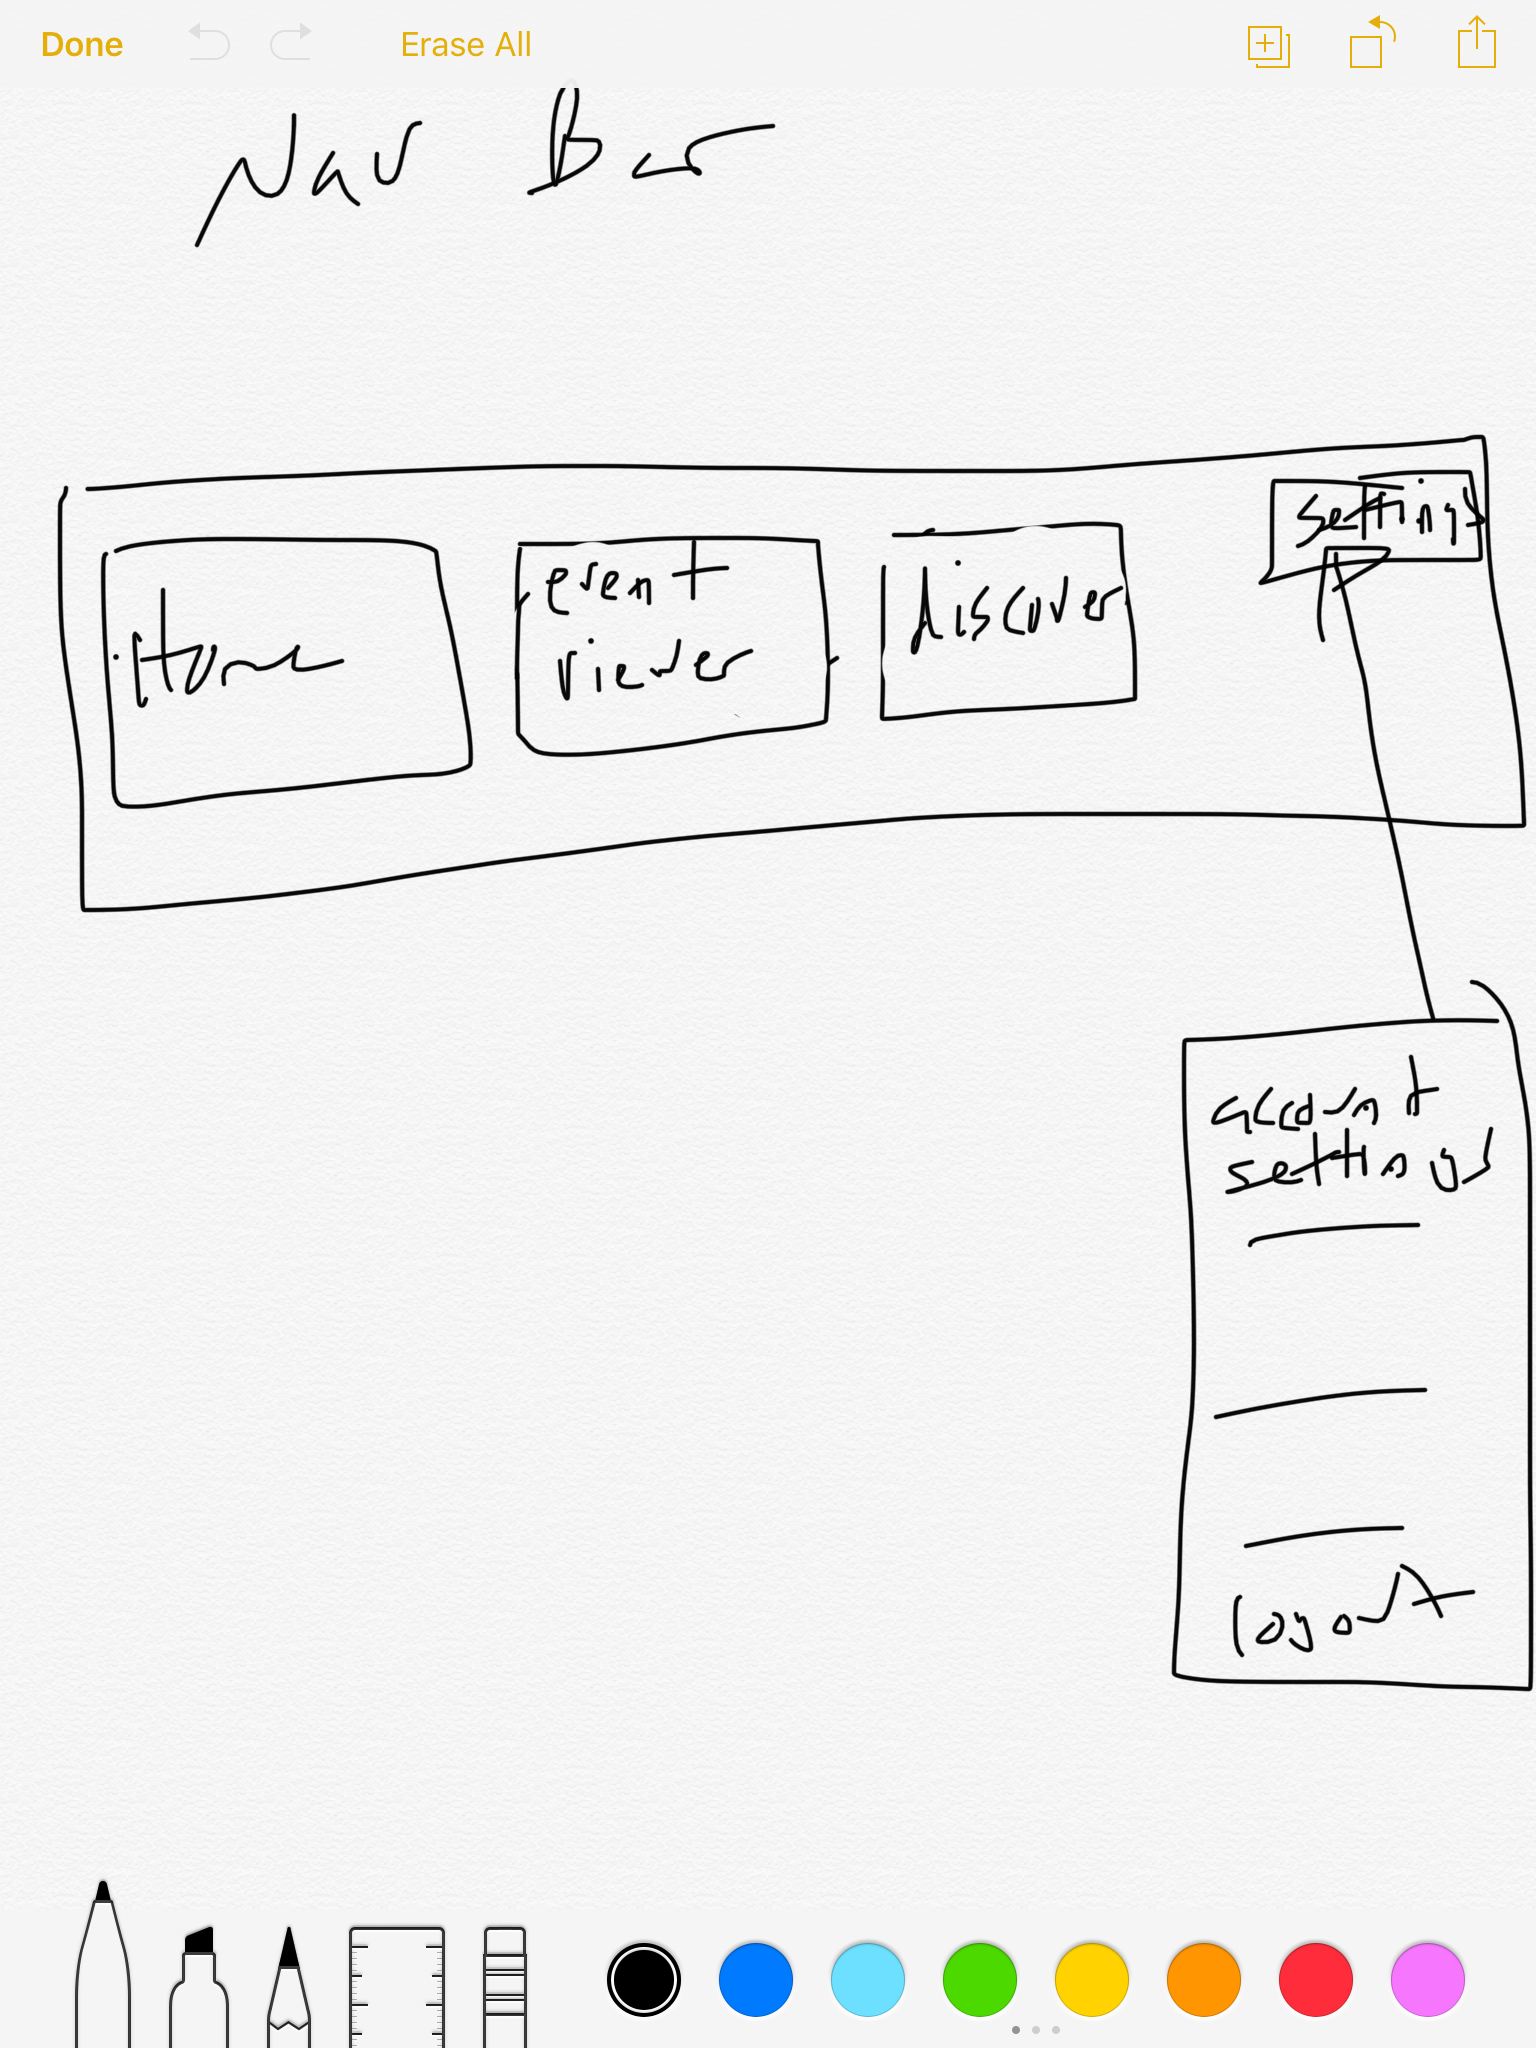 Done Erase All
Nav Bar
Home
event
viewer
discover
settings
account
settings
logout